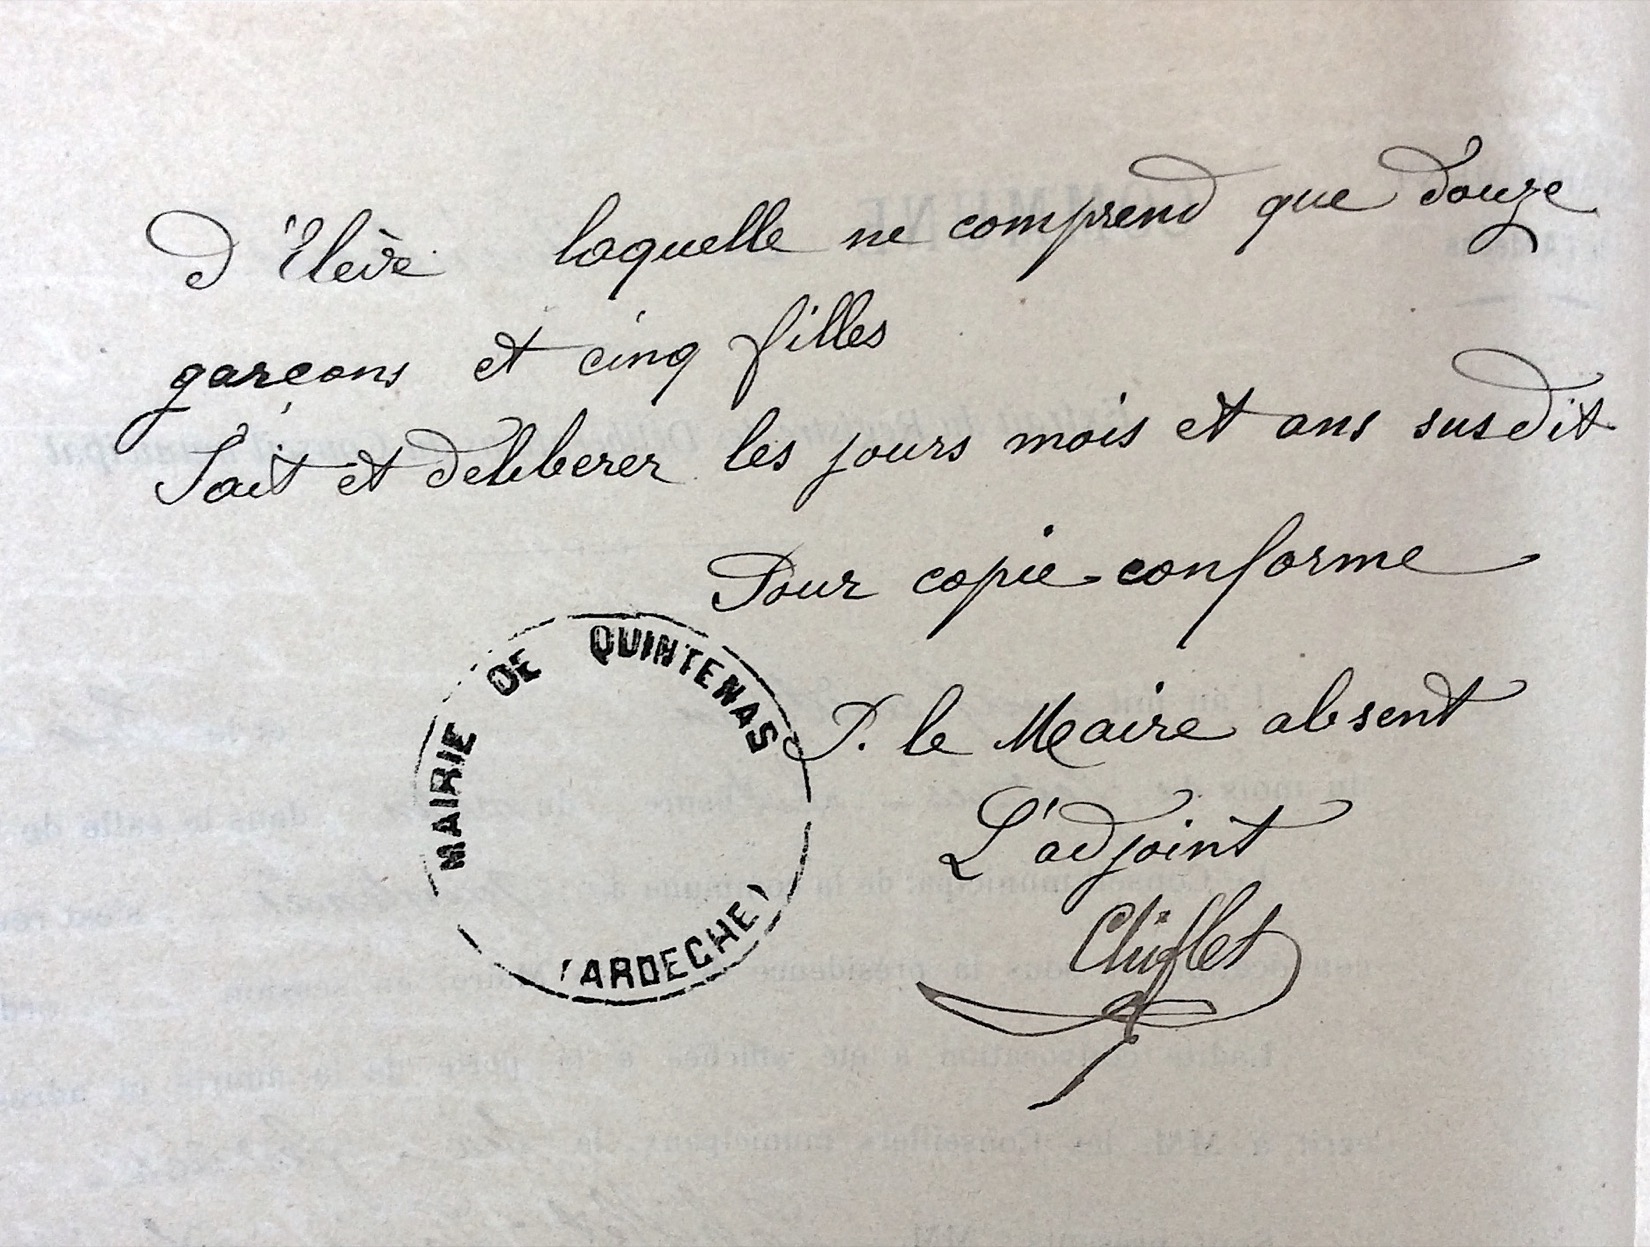 d'Elève laquelle ne comprend que douze
garçons et cinq filles
Fait et deliberer les jours mois et ans susdit
Pour copie conforme
P. le Maire absent
L'adjoint
Chiflet
MAIRIE DE QUINTENAS
(ARDECHE)